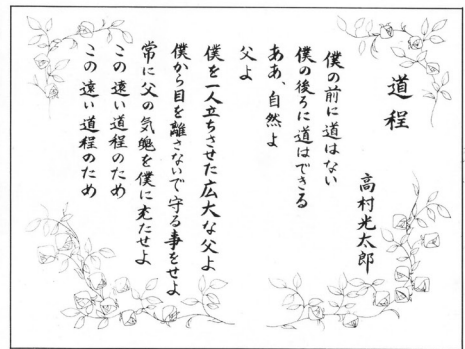 道程
高村光太郎
僕の前に道はない
僕の後ろに道はできる
ああ、自然よ
父よ
僕を一人立ちさせた広大な父よ
僕から目を離さないで守る事をせよ
常に父の気魄を僕に充たせよ
この遠い道程のため
この遠い道程のため